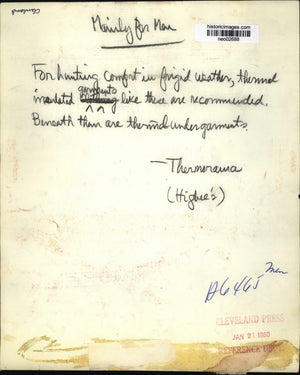 Cleveland
Mainly For Men
historicimages.com
neo02688
For hunting comfort in frigid weather, thermal
garments
insulated clothing like these are recommended.
Beneath them are thermal undergarments.
— Thermorama
(Higbee's)
Men
A6465
CLEVELAND PRESS
JAN 21 1960
REFERENCE DEPT.